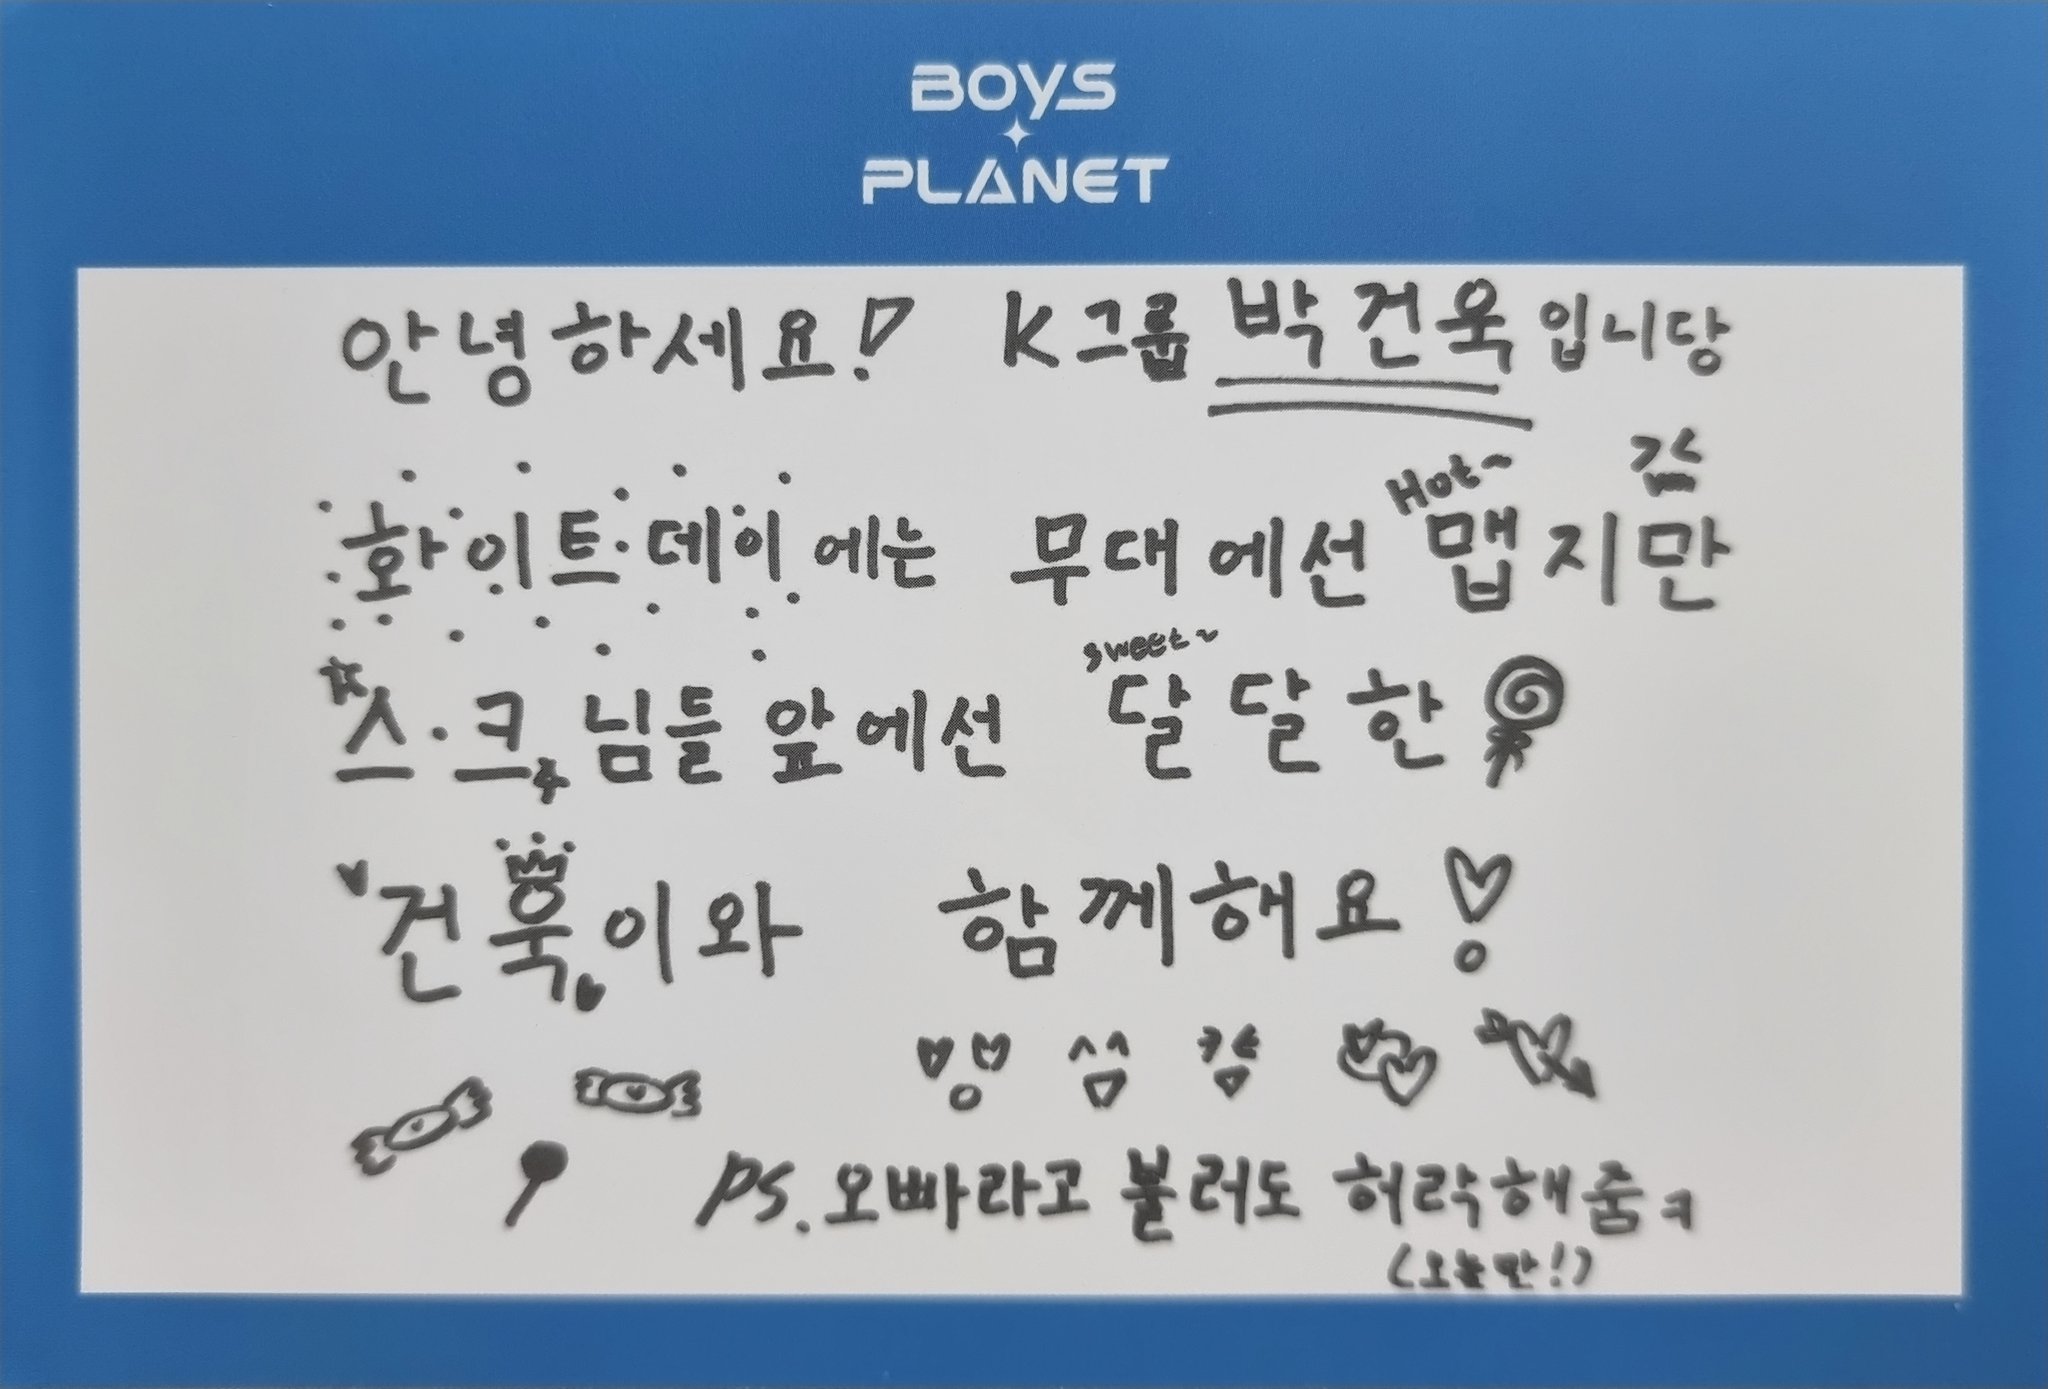 BOYS
PLANET
안녕하세요! K그룹 박건욱입니당
Hot~
화이트·데이에는 무대에선 맵지만
sweet~
스·크님들 앞에선 달달한
건욱이와 함께해요!
PS. 오빠라고 불러도 허락해줌ㅋ
(오늘만!)